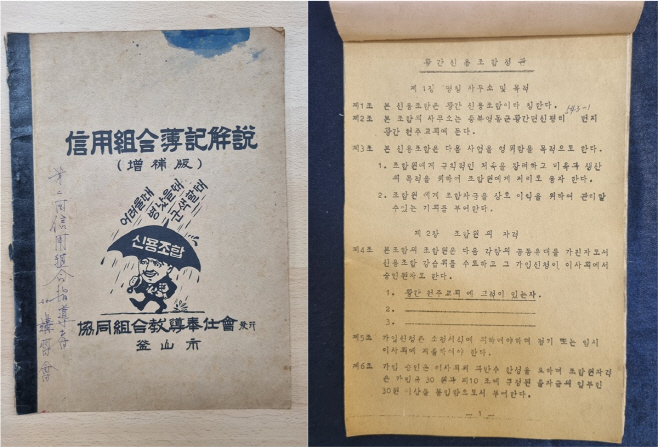 信用組合簿記解說
(增補版)
어려울때
궁색할때
신용조합
協同組合敎導奉仕會 發行
釜山市
第二回信用組合指導者
講習會
황간신용조합정관
제1장 명칭 사무소 및 목적
제1조 본 신용조합은 황간 신용조합이라 칭한다.
543-1
제2조 본 조합의 사무소는 충북영동군황간면신평리 번지
황간 천주교회에 둔다.
제3조 본 신용조합은 다음 사업을 영위함을 목적으로 한다.
1. 조합원에게 규칙적인 저축을 장려하고 비축과 생산
의 목적을 위하여 조합원에게 저리로 융자 한다.
2. 조합원 에게 조합자금을 상호 이익을 위하여 관리할
수있는 기회를 부여한다.
제2장 조합원의 자격
제4조 본조합의 조합원은 다음 각항의 공동유대를 가진자로서
신용조합 강습회를 수료하고 그 가입신청이 이사회에서
승인된자로 한다.
1. 황간 천주교회 에 교적이 있는자.
2.
3.
제5조 가입신청은 소정서식에 의하여야하며 정기 또는 임시
이사회에 제출되어야 한다.
제6조 가입 승인은 이사회의 과반수 찬성을 요하며 조합원자격
은 가입금 30원과 제10조에 규정된 출자금의 일부인
30원 이상을 불입함으로서 부여한다.
- 1 -